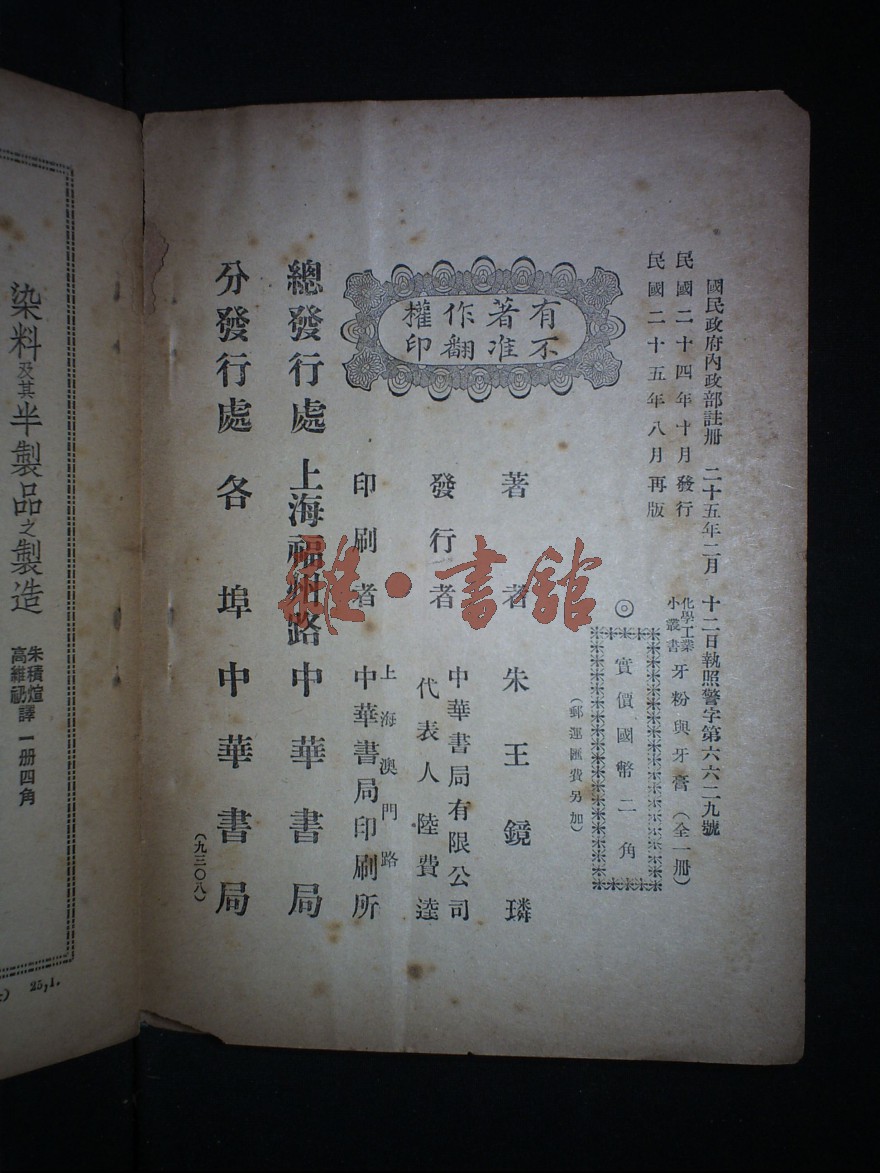 國民政府內政部註册 二十五年二月十二日執照警字第六六二九號
民國二十四年十月發行
民國二十五年八月再版
化學工業小叢書 牙粉與牙膏 (全一册)
◎ 實價國幣二角
(郵運匯費另加)
有著作權
不准翻印
著者 朱王鏡璘
發行者 中華書局有限公司
代表人 陸費逵
印刷者 上海澳門路
中華書局印刷所
總發行處 上海福州路 中華書局
分發行處 各埠中華書局
(九三〇八)
雜·書館
染料及其半製品之製造
朱積煊
高維礽 譯 一册四角
25,1.